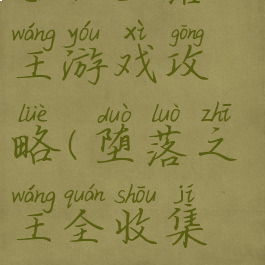 wáng yóu xì gōng
王游戏攻
lüè duò luò zhī
略(堕落之
wáng quán shōu jí
王全收集